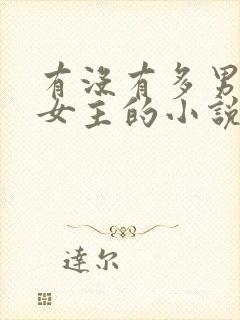 有沒有多男
女主的小說
達尔